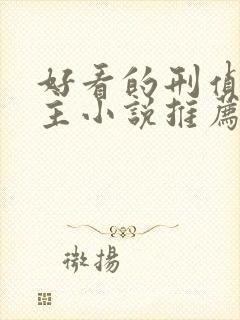 好看的刑偵
主小說推薦
微揚